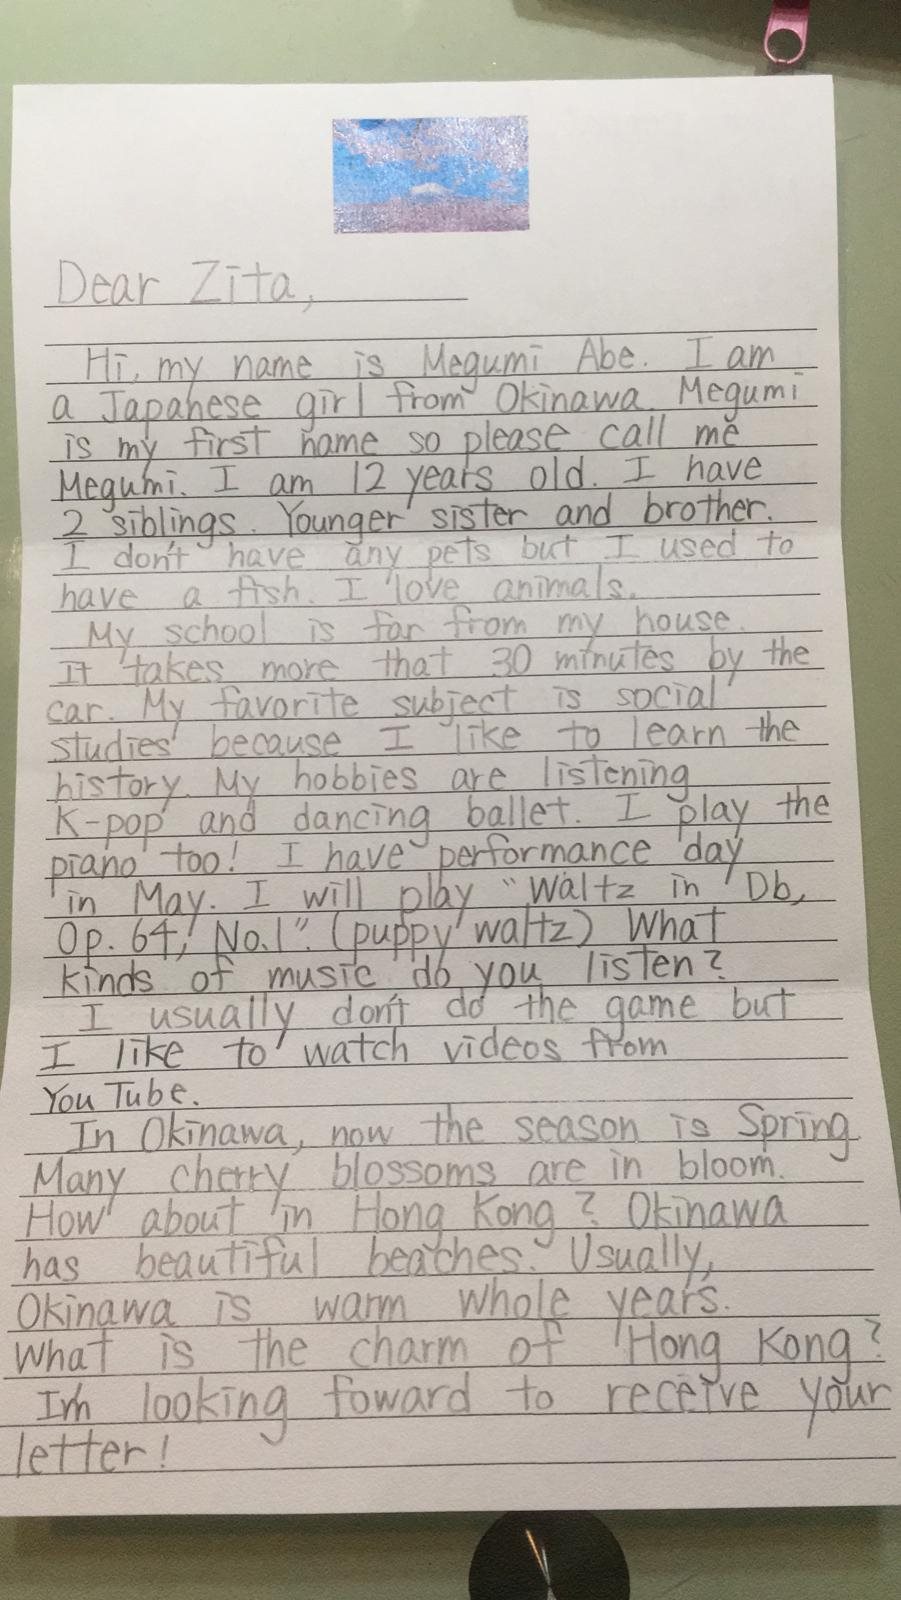 Dear Zita,
Hi, my name is Megumi Abe. I am
a Japanese girl from Okinawa. Megumi
is my first name so please call me
Megumi. I am 12 years old. I have
2 siblings. Younger sister and brother.
I don't have any pets but I used to
have a fish. I love animals.
My school is far from my house.
It takes more that 30 minutes by the
car. My favorite subject is social
studies because I like to learn the
history. My hobbies are listening
K-pop and dancing ballet. I play the
piano too! I have performance day
in May. I will play "Waltz in Db,
Op. 64, No.1". (puppy waltz) What
kinds of music do you listen?
I usually don't do the game but
I like to watch videos from
YouTube.
In Okinawa, now the season is Spring
Many cherry blossoms are in bloom.
How about in Hong Kong? Okinawa
has beautiful beaches. Usually,
Okinawa is warm whole years.
What is the charm of Hong Kong?
I'm looking foward to receive your
letter!